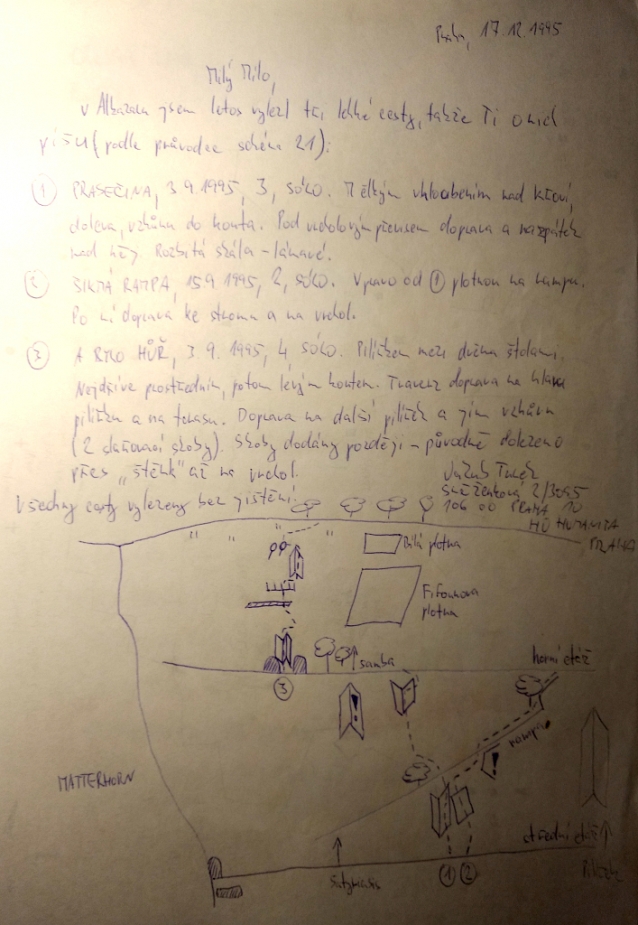 Praha, 17.12.1995
Milý Mílo,
v Alkazaru jsem letos vylezl tři lehké cesty, takže Ti o nich
píšu (podle průvodce schéma 21):
① PRASEČINA, 3.9.1995, 3, SÓLO. Mělkým vhloubením nad křoví,
doleva, vzhůru do kouta. Pod vrcholovým převisem doprava a nazpátek
nad něj. Rozbitá skála - lámavé.
② ŠIKMÁ RAMPA, 15.9.1995, 2, SÓLO. Vpravo od ① plotnou na rampu.
Po ní doprava ke stromu a na vrchol.
③ A BYLO HŮŘ, 3.9.1995, 4, SÓLO. Pilířkem mezi dvěma štolami.
Nejdříve prostředním, potom levým koutem. Travers doprava na hlavu
pilířku a na terasu. Doprava na další pilířek a jím vzhůru
(2 slaňovací skoby). Skoby dodány později - původně dolezeno
přes "štěrk" až na vrchol.
Všechny cesty vylezeny bez jištění.
Jakub
2/3095
106 00 PRAHA 10
HO HUMANITA
PRAHA
Bílá plotna
Fifounova
plotna
samba
horní etáž
③
rampa
MATTERHORN
střední etáž
① ②
Pilířek